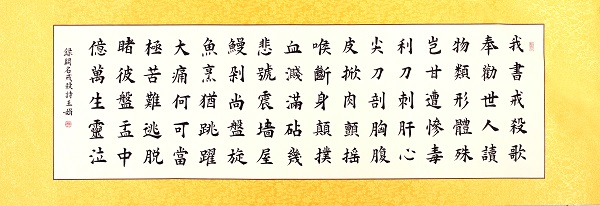 我書戒殺歌
奉勸世人讀
物類形體殊
豈甘遭慘毒
利刀刺肝心
尖刀剖胸腹
皮掀肉顫搖
喉斷身顛撲
血濺滿砧幾
悲號震墙屋
鰻剁尚盤旋
魚烹猶跳躍
大痛何可當
極苦難逃脫
睹彼盤盂中
億萬生靈泣
名戒殺詩玉娟